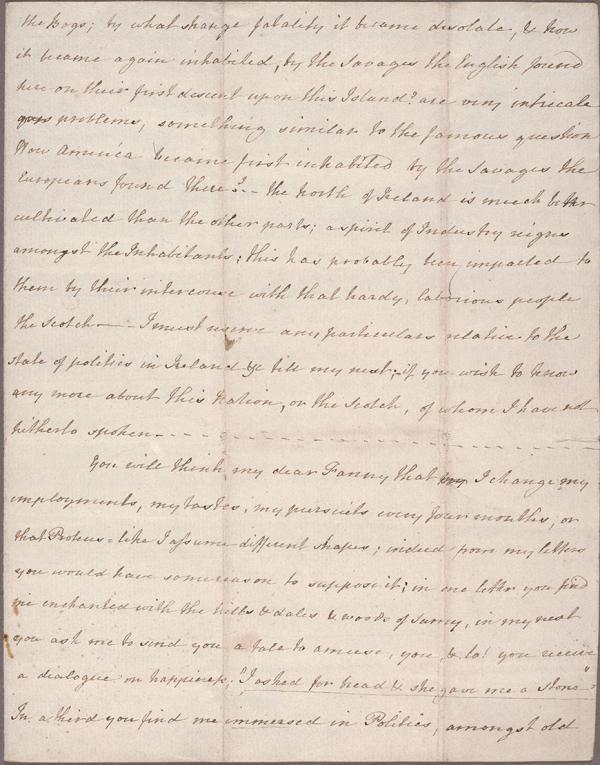 the Bogs; by what strange fatality it became desolate, & how
it became again inhabited, by the Savages the English found
here on their first descent upon this Island? are very intricate
problems, something similar to the famous question
How America became first inhabited by the Savages the
Europeans found there? - - the North of Ireland is much better
cultivated than the other parts; a spirit of Industry reigns
amongst the Inhabitants; this has probably been imparted to
them by their intercourse with that hardy, laborious people
the Scotch — - I must reserve any particulars relative to the
state of politics in Ireland &c till my next; if you wish to know
any more about this Nation, or the Scotch, of whom I have not
hitherto spoken - - - - - - - - - - - - - - - - - - - -
You will think my dear Fanny that my I change my
employments, my tastes, my pursuits every four months, or
that Proteus=like I assume different shapes; indeed from my letters
you would have some reason to suppose it; in one letter you find
me enchanted with the hills & dales & woods of Surrey, in my next
you ask me to send you a tale to amuse, you, & lo! you receive
a dialogue on happiness; "I asked for bread & she gave me a stone"
In a third you find me immersed in Politics, amongst old